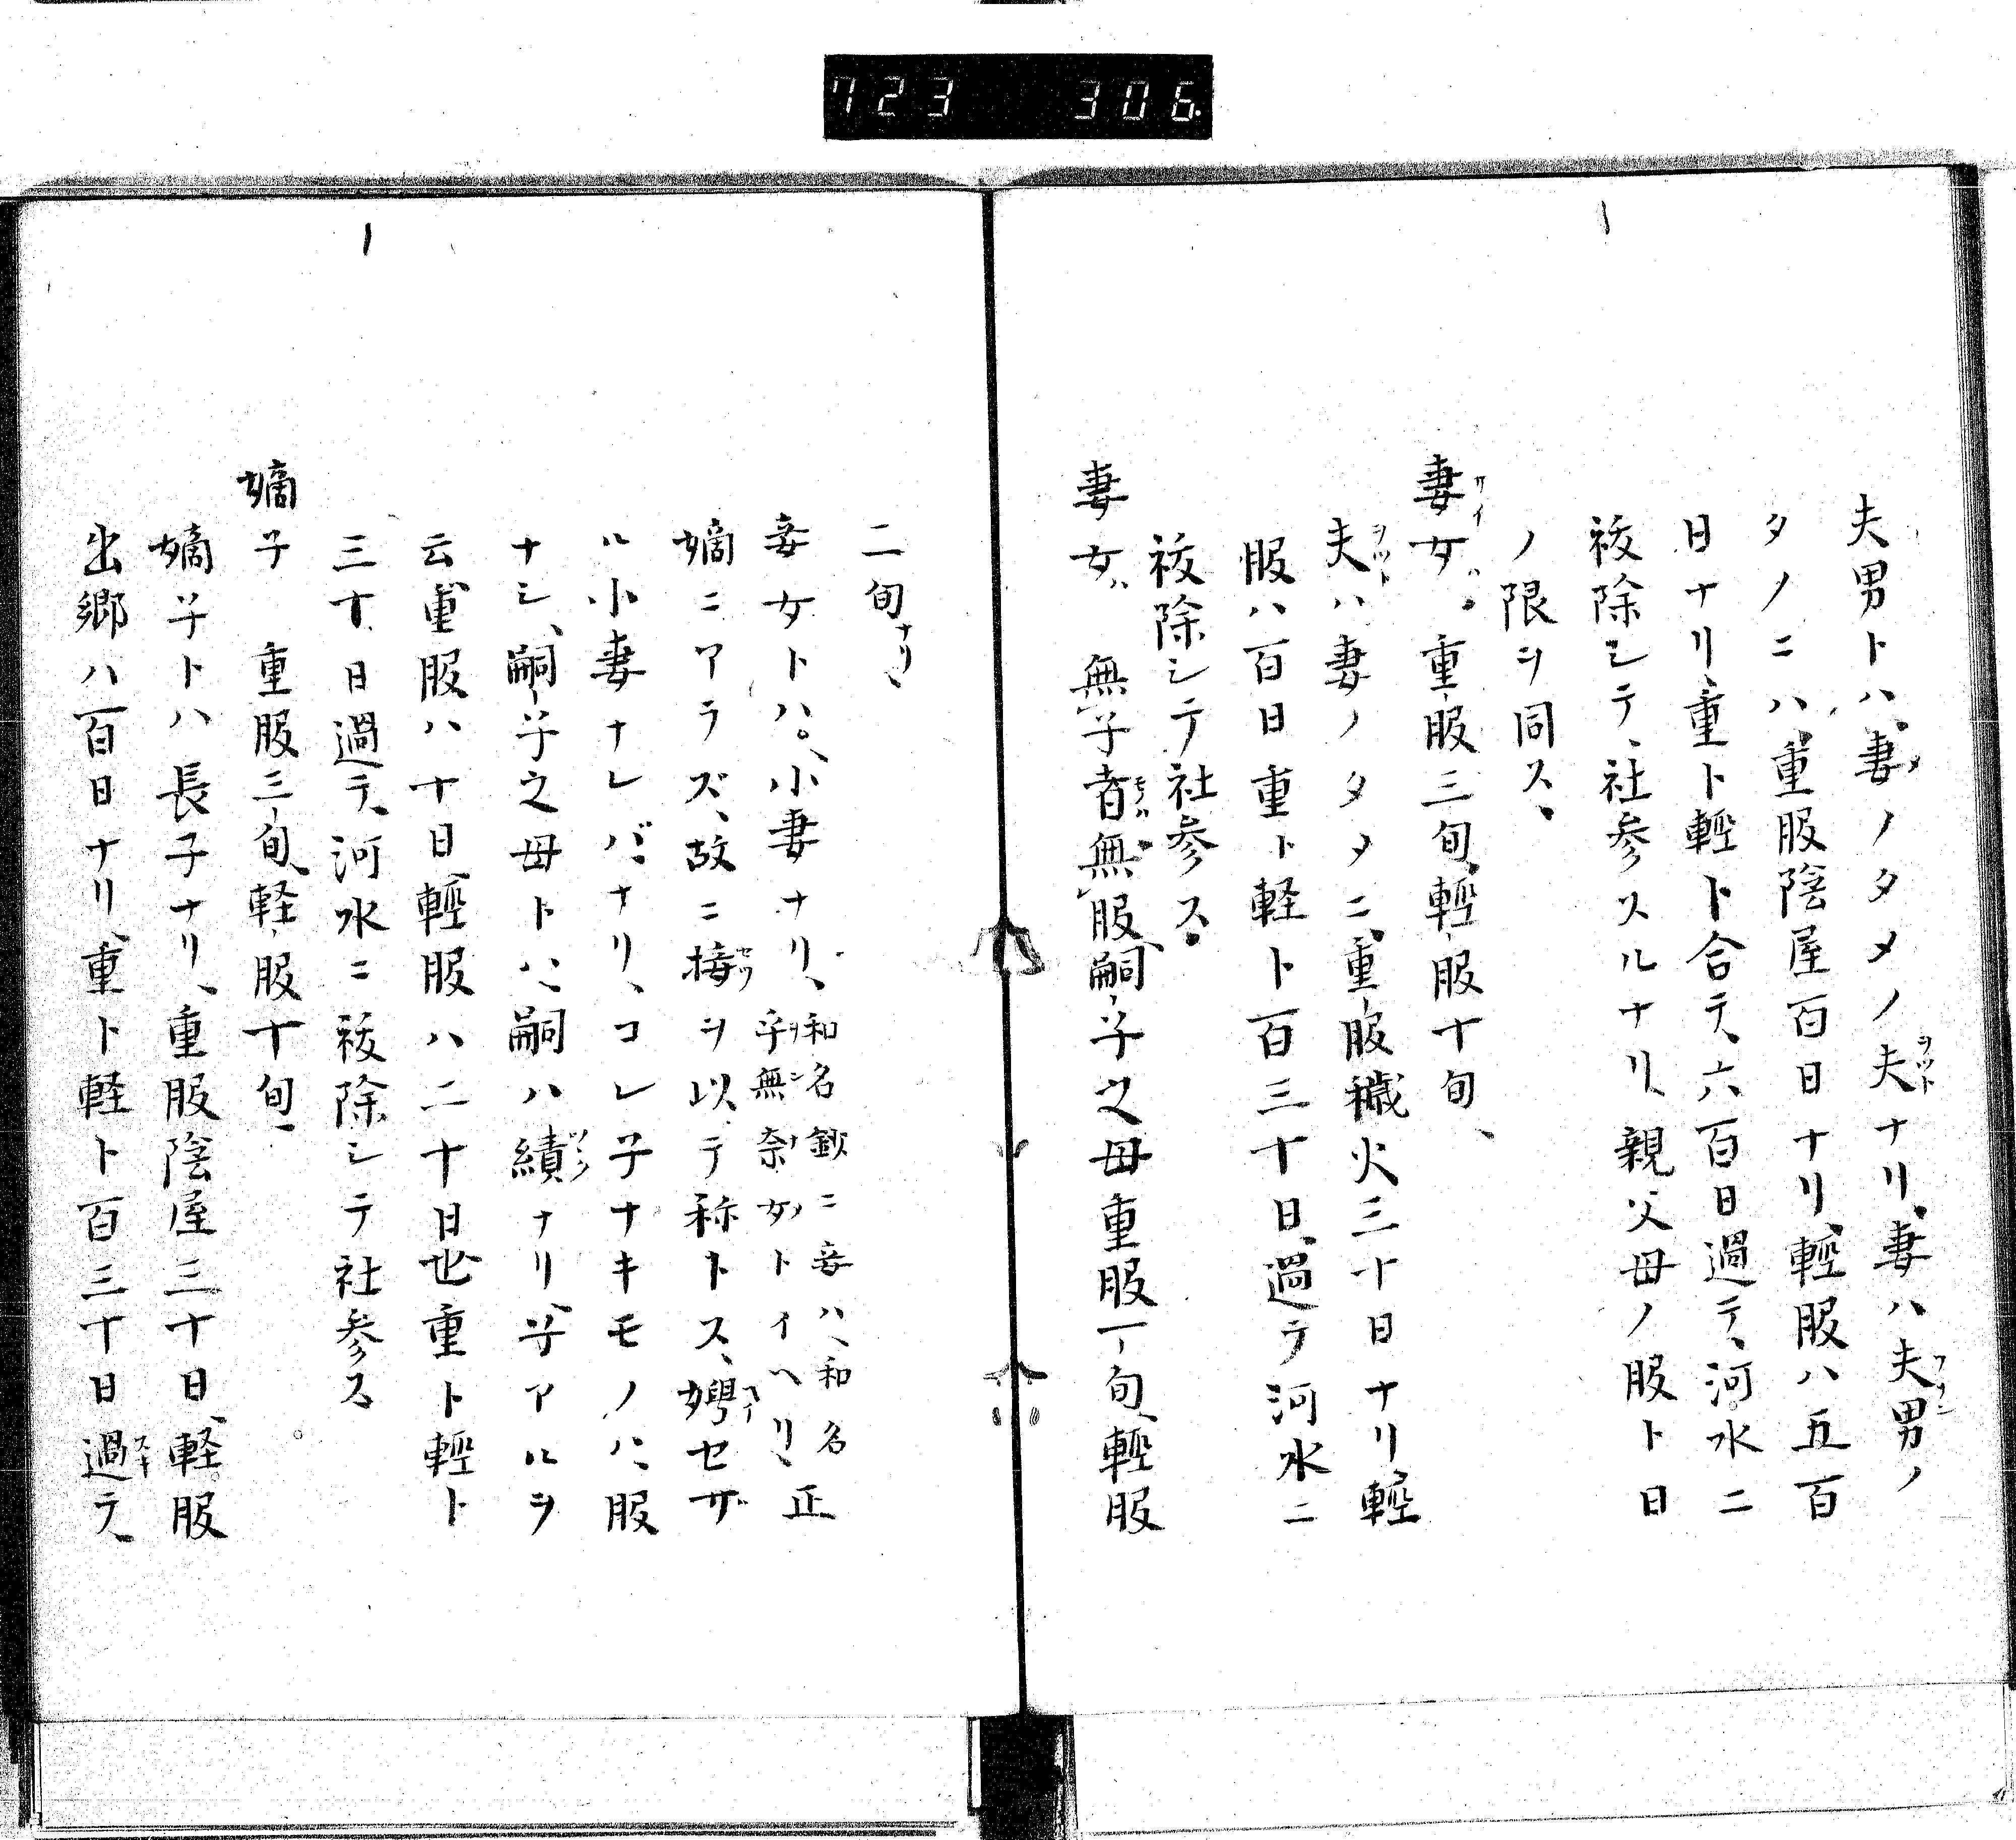 723 306
夫男トハ、妻ノタメノ夫ナリ、妻ハ夫男ノ
タメニハ重服陰屋百日ナリ、輕服ハ五百
日ナリ、重ト輕ト合テ、六百日過テ、河水ニ
祓除シテ、社参スルナリ、親父母ノ服ト日
ノ限ヲ同ス、
妻女ハ、重服三旬、輕服十旬、
夫ハ妻ノタメニ、重服穢火三十日ナリ輕
服ハ百日重ト軽ト百三十日、過テ河水ニ
祓除シテ社参ス、
妻女ハ 無子者無服嗣子之母重服一旬、輕服
二旬ナリ、
妾女トハ、小妻ナリ、和名鈔ニ妾ハ、和名
乎無奈女トイヘリ、正
嫡ニアラズ、故ニ接ヲ以テ称トス、娉セザ
ル小妻ナレバナリ、コレ子ナキモノハ、服
ナシ、嗣子之母トハ、嗣ハ績ナリ、子アルヲ
云重服ハ十日、輕服ハ二十日也重ト輕ト
三十日過テ、河水ニ祓除シテ社参ス
嫡子 重服三旬、軽服十旬、
嫡子トハ長子ナリ、重服陰屋三十日、軽服
出郷ハ百日ナリ、重ト軽ト百三十日過テ、